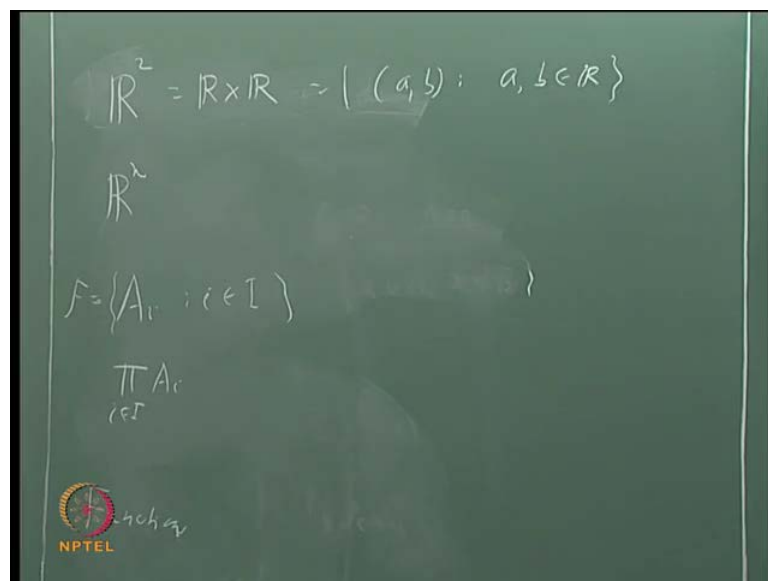 ℝ² = ℝ×ℝ = { (a,b) : a, b ∈ ℝ }
ℝⁿ
F = { Aᵢ : i ∈ I }
∏ Aᵢ
i∈I
NPTEL